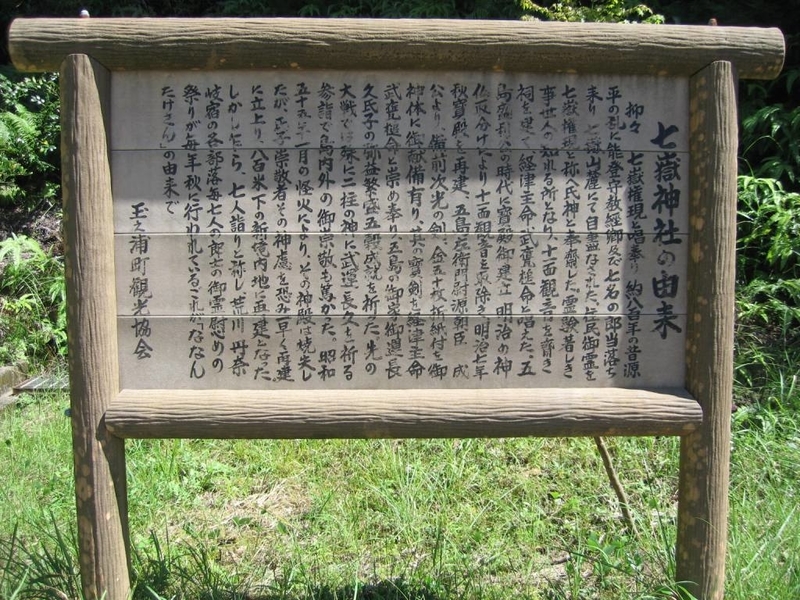 七嶽神社の由来
抑々 七嶽権現と唱奉り 約八百年の昔源
平の乱の能登守教經卿及び七名の郎当落ち
来り 七嶽山麓にて自盡なされた。土民御霊を
七嶽権現と称へ氏神と奉齋した。霊験著しき
事世人の知れる所なり。十面観音を齋き
祠を建て経津主命、武甕槌命と唱えた。五
島盛利公の時代に寳殿御建立 明治の神
仏取分けにより十一面観音を取除き 明治七年
秋寳殿を再建、五島左衛門尉源朝臣 成
公より、備前次光の剣、金五十枚折紙付を御
神体に御献備有り、其の寳剣を経津主命
武甕槌命と崇め奉り五島の御家御運長
久氏子の弥益繁盛五穀成就を祈た。先の
大戦では殊に二柱の神に武運長久を祈る
参詣で島内外の御崇敬も篤かた。昭和
五十五年一月の怪火により、その神殿は焼失し
たが、氏子崇敬者はその神慮を恐み早く再建
に立上り、八百米下の新境内地に再建となた
しかしながら、七人詣りと称し荒川、丹奈
岐宿の各部落毎七人の武士の御霊慰めの
祭りが毎年秋に行われている。これが「ななん
たけさん」の由来で
玉之浦町観光協会